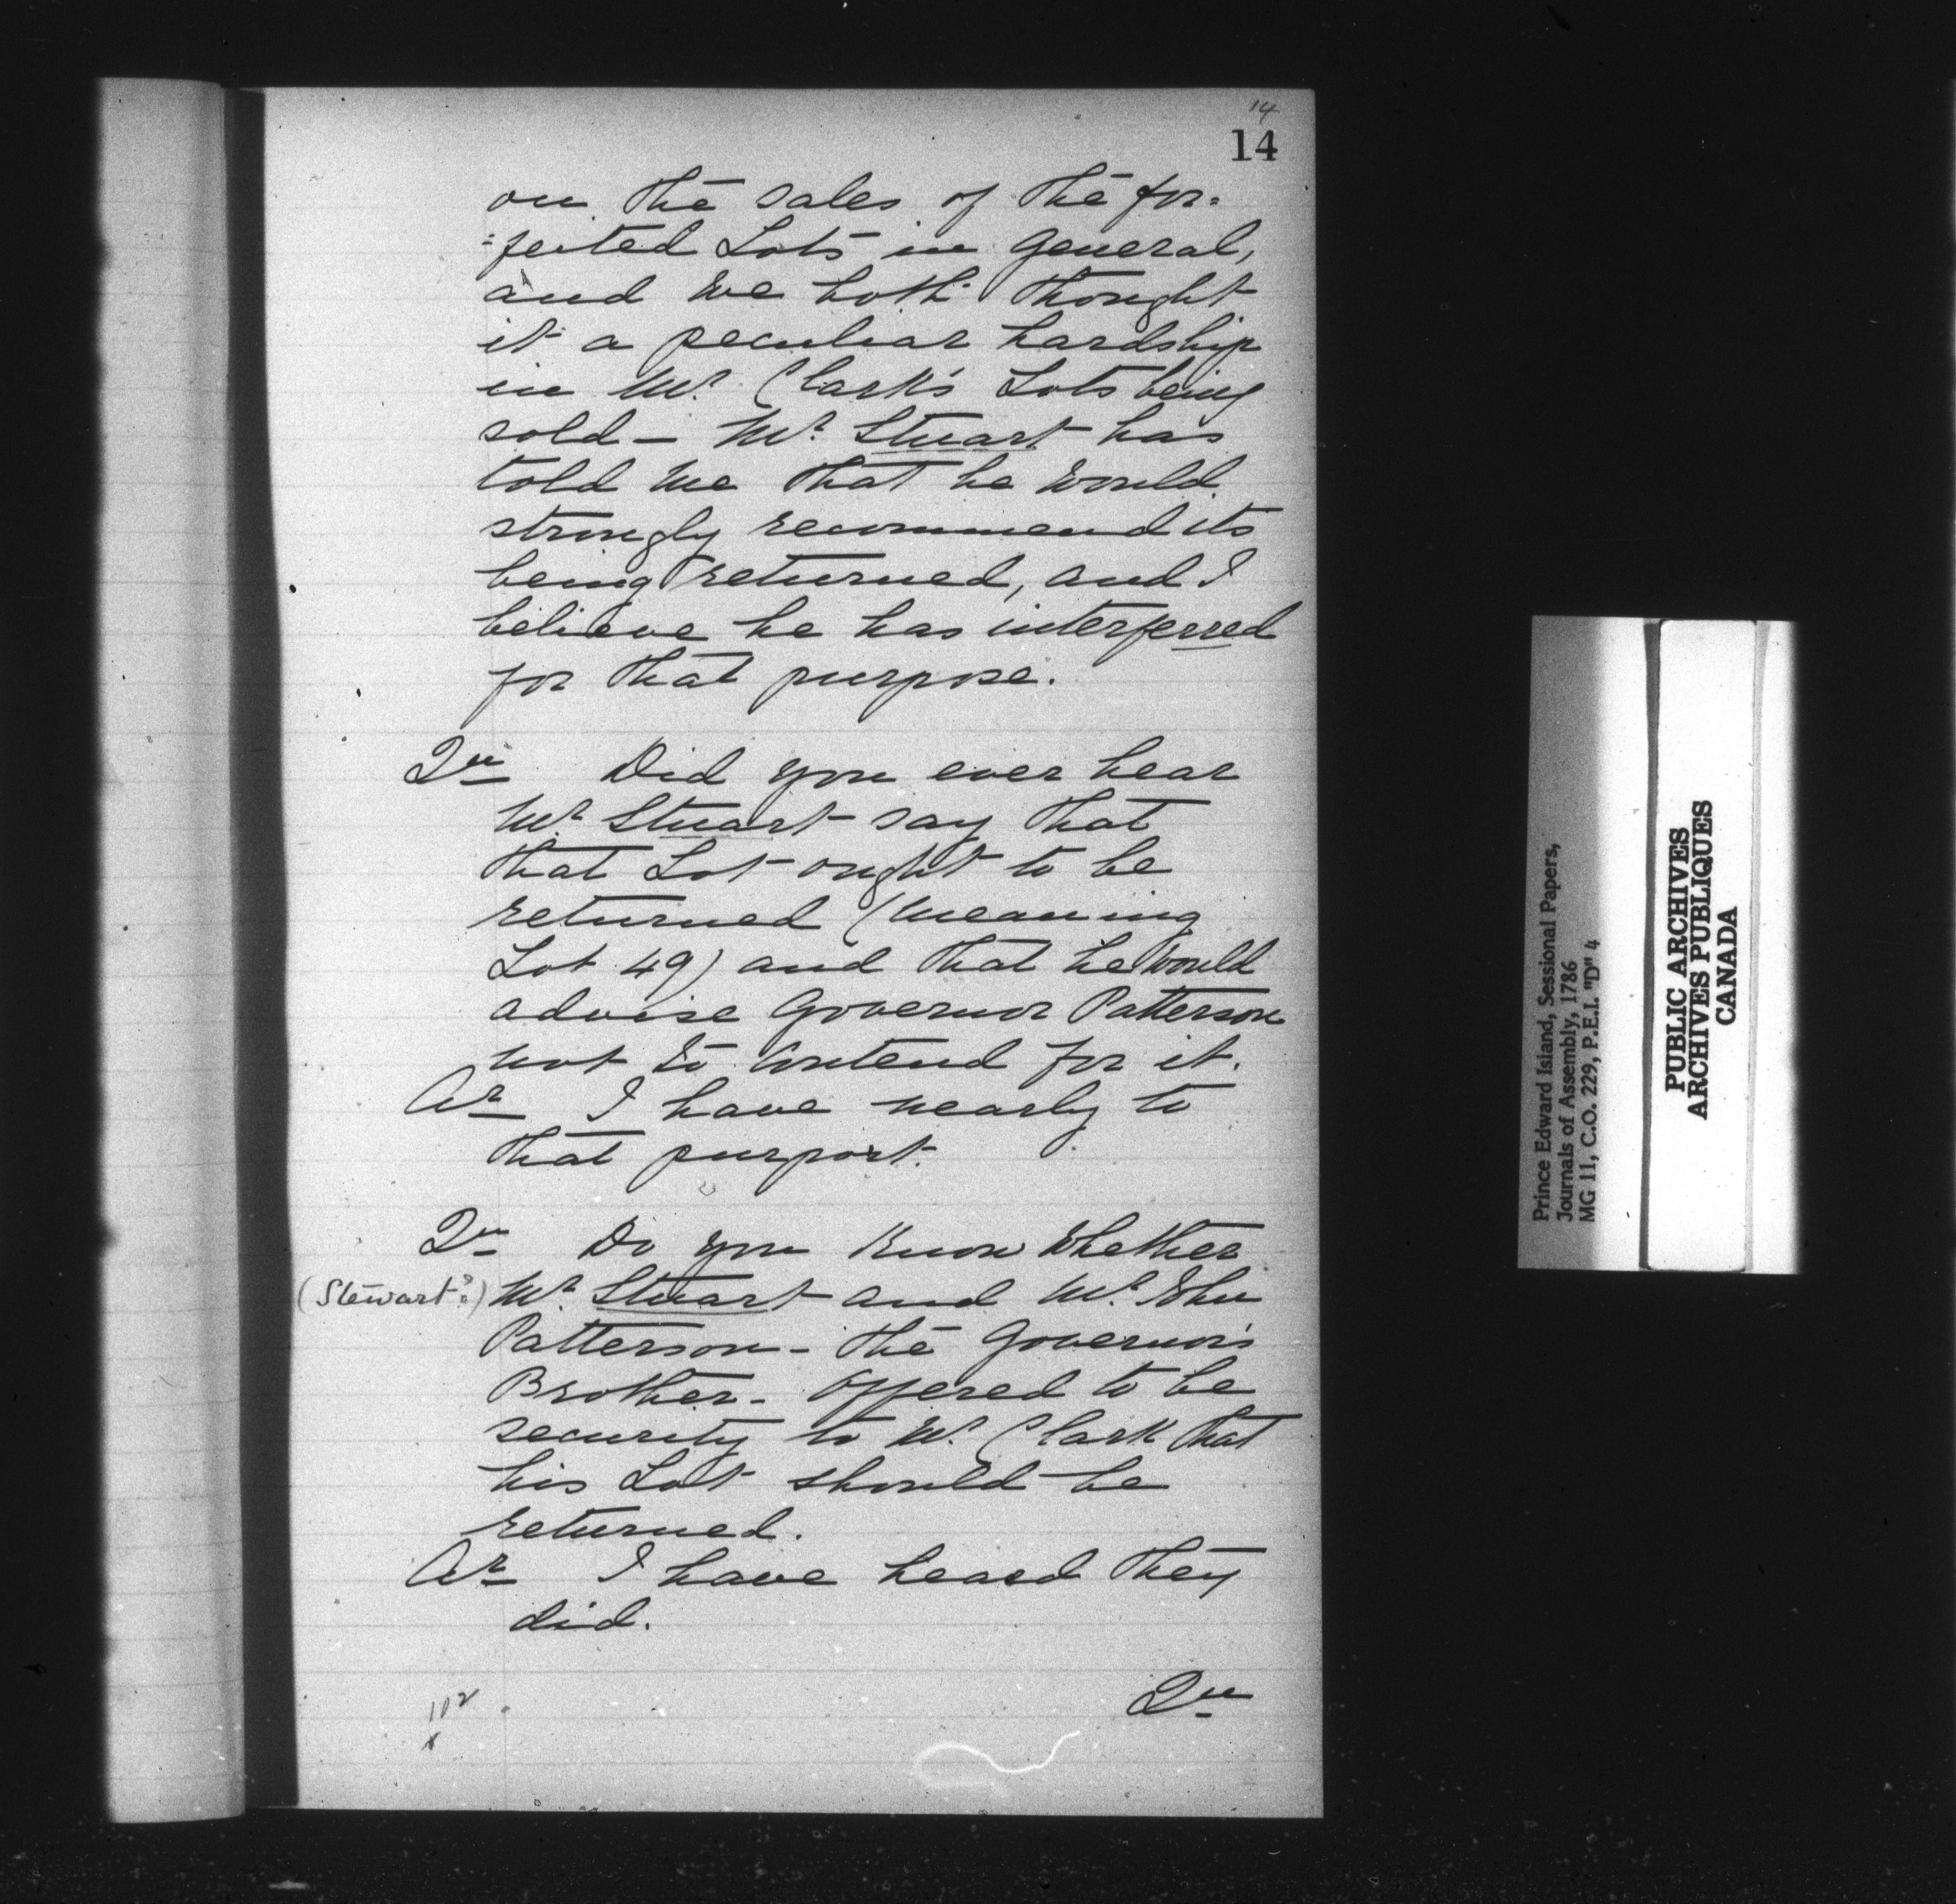 14
14
on the sales of the for=
=feited Lots in General,
and we both thought
it a peculiar hardship
in Mr. Clark's Lots being
sold — Mr. Stuart has
told me that he would
strongly recommend its
being returned, and I
believe he has interferred
for that purpose.
Qu Did you ever hear
Mr Stuart say that
that Lot ought to be
returned (meaning
Lot 49) and that he would
advise Governor Patterson
not to contend for it.
Ar I have nearly to
that purport.
Qu Do you know whether
(Stewart?) Mr Stuart and Mr. John
Patterson - the Governor's
Brother - offered to be
security to Mr. Clark that
his Lot should be
returned.
Ar I have heard they
did.
Qu
102
Prince Edward Island, Sessional Papers,
Journals of Assembly, 1786
MG 11, C.O. 229, P.E.I. "D" 4
PUBLIC ARCHIVES
ARCHIVES PUBLIQUES
CANADA